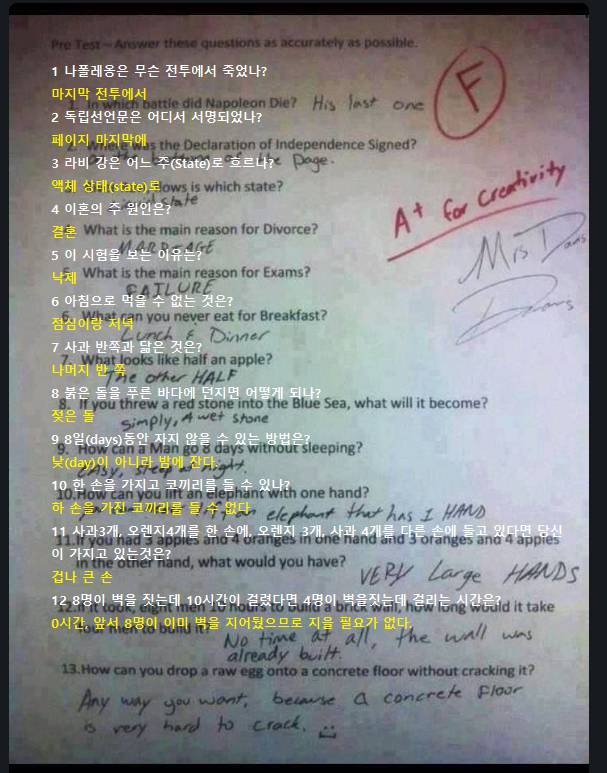 Pre Test – Answer these questions as accurately as possible.
1 나폴레옹은 무슨 전투에서 죽었나?
마지막 전투에서
1. In which battle did Napoleon Die? His last one
F
2 독립선언문은 어디서 서명되었나?
2. Where was the Declaration of Independence Signed?
페이지 마지막에
the Page.
3 라비 강은 어느 주(State)로 흐르나?
액체 상태(state)로
flows is which state?
state
A+ for Creativity
4 이혼의 주 원인은?
What is the main reason for Divorce?
결혼
MARRIAGE
Mrs Davis
5 이 시험을 보는 이유는?
5. What is the main reason for Exams?
낙제
FAILURE
6 아침으로 먹을 수 없는 것은?
6. What can you never eat for Breakfast?
점심이랑 저녁
Lunch & Dinner
7 사과 반쪽과 닮은 것은?
7. What looks like half an apple?
나머지 반 쪽
The other HALF
8 붉은 돌을 푸른 바다에 던지면 어떻게 되나?
8. If you threw a red stone into the Blue Sea, what will it become?
젖은 돌
simply, A wet stone
9 8일(days)동안 자지 않을 수 있는 방법은?
9. How can a Man go 8 days without sleeping?
낮(day)이 아니라 밤에 잔다.
EASY, sleep at night.
10 한 손을 가지고 코끼리를 들 수 있나?
10. How can you lift an elephant with one hand?
하 손을 가진 코끼리를 들 수 없다
an elephant that has 1 HAND
11 사과3개, 오렌지4개를 한 손에, 오렌지 3개, 사과 4개를 다른 손에 들고 있다면 당신
이 가지고 있는것은?
11. If you had 3 apples and 4 oranges in one hand and 3 oranges and 4 apples
in the other hand, what would you have?
겁나 큰 손
VERY Large HANDS
12 8명이 벽을 짓는데 10시간이 걸렸다면 4명이 벽을짓는데 걸리는 시간은?
12. If it took, eight men 10 hours to build a brick wall, how long would it take
0시간, 앞서 8명이 이미 벽을 지어뒀으므로 지을 필요가 없다.
four men to build it?
No time at all, the wall was
already built.
13. How can you drop a raw egg onto a concrete floor without cracking it?
Any way you want, because a concrete floor
is very hard to crack.